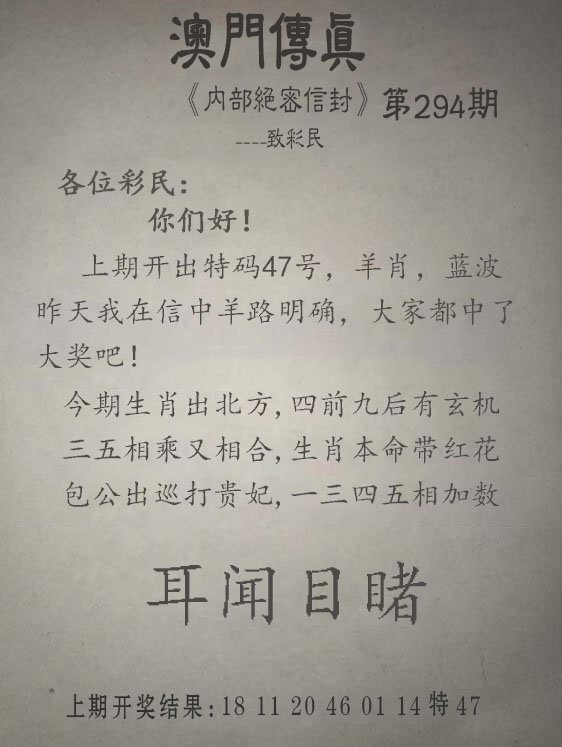 澳門傳眞
《内部絕密信封》第294期
----致彩民
各位彩民:
你们好!
上期开出特码47号，羊肖，蓝波
昨天我在信中羊路明确，大家都中了
大奖吧!
今期生肖出北方,四前九后有玄机
三五相乘又相合,生肖本命带红花
包公出巡打贵妃,一三四五相加数
耳闻目睹
上期开奖结果:18 11 20 46 01 14特47